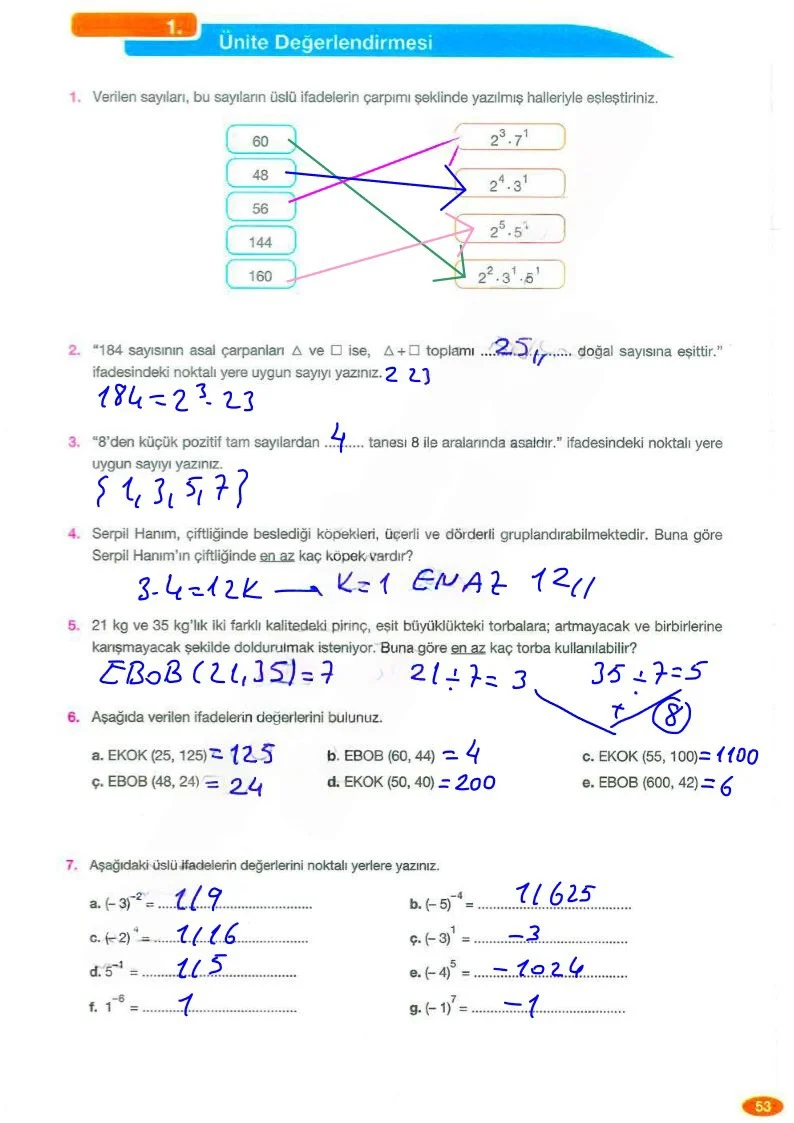 1.
Ünite Değerlendirmesi
1. Verilen sayıları, bu sayıların üslü ifadelerin çarpımı şeklinde yazılmış halleriyle eşleştiriniz.
60
2³.7¹
48
2⁴.3¹
56
2⁵.5¹
144
160
2².3¹.5¹
2. "184 sayısının asal çarpanları △ ve □ ise, △+□ toplamı ....25,,....... doğal sayısına eşittir."
ifadesindeki noktalı yere uygun sayıyı yazınız. 2 23
184 = 2³. 23
3. "8'den küçük pozitif tam sayılardan ....4.... tanesi 8 ile aralarında asaldır." ifadesindeki noktalı yere
uygun sayıyı yazınız.
{1, 3, 5, 7}
4. Serpil Hanım, çiftliğinde beslediği köpekleri, üçerli ve dörderli gruplandırabilmektedir. Buna göre
Serpil Hanım'ın çiftliğinde en az kaç köpek vardır?
3.4=12K → K=1 EN AZ 12//
5. 21 kg ve 35 kg'lık iki farklı kalitedeki pirinç, eşit büyüklükteki torbalara; artmayacak ve birbirlerine
karışmayacak şekilde doldurulmak isteniyor. Buna göre en az kaç torba kullanılabilir?
EBOB (21,35)=7 21÷7=3 35÷7=5
+ 8
6. Aşağıda verilen ifadelerin değerlerini bulunuz.
a. EKOK (25, 125) = 125 b. EBOB (60, 44) = 4 c. EKOK (55, 100) = 1100
ç. EBOB (48, 24) = 24 d. EKOK (50, 40) = 200 e. EBOB (600, 42) = 6
7. Aşağıdaki üslü ifadelerin değerlerini noktalı yerlere yazınız.
a. (– 3)⁻² = ....1/9.................... b. (– 5)⁻⁴ = ........1/625........
c. (– 2)⁻⁴ = ....1/16................ ç. (– 3)¹ = ........–3....................
d. 5⁻¹ = ........1/5................ e. (– 4)⁵ = ....–1024............
f. 1⁻⁶ = ........1.................... g. (– 1)⁷ = ........–1....................
53